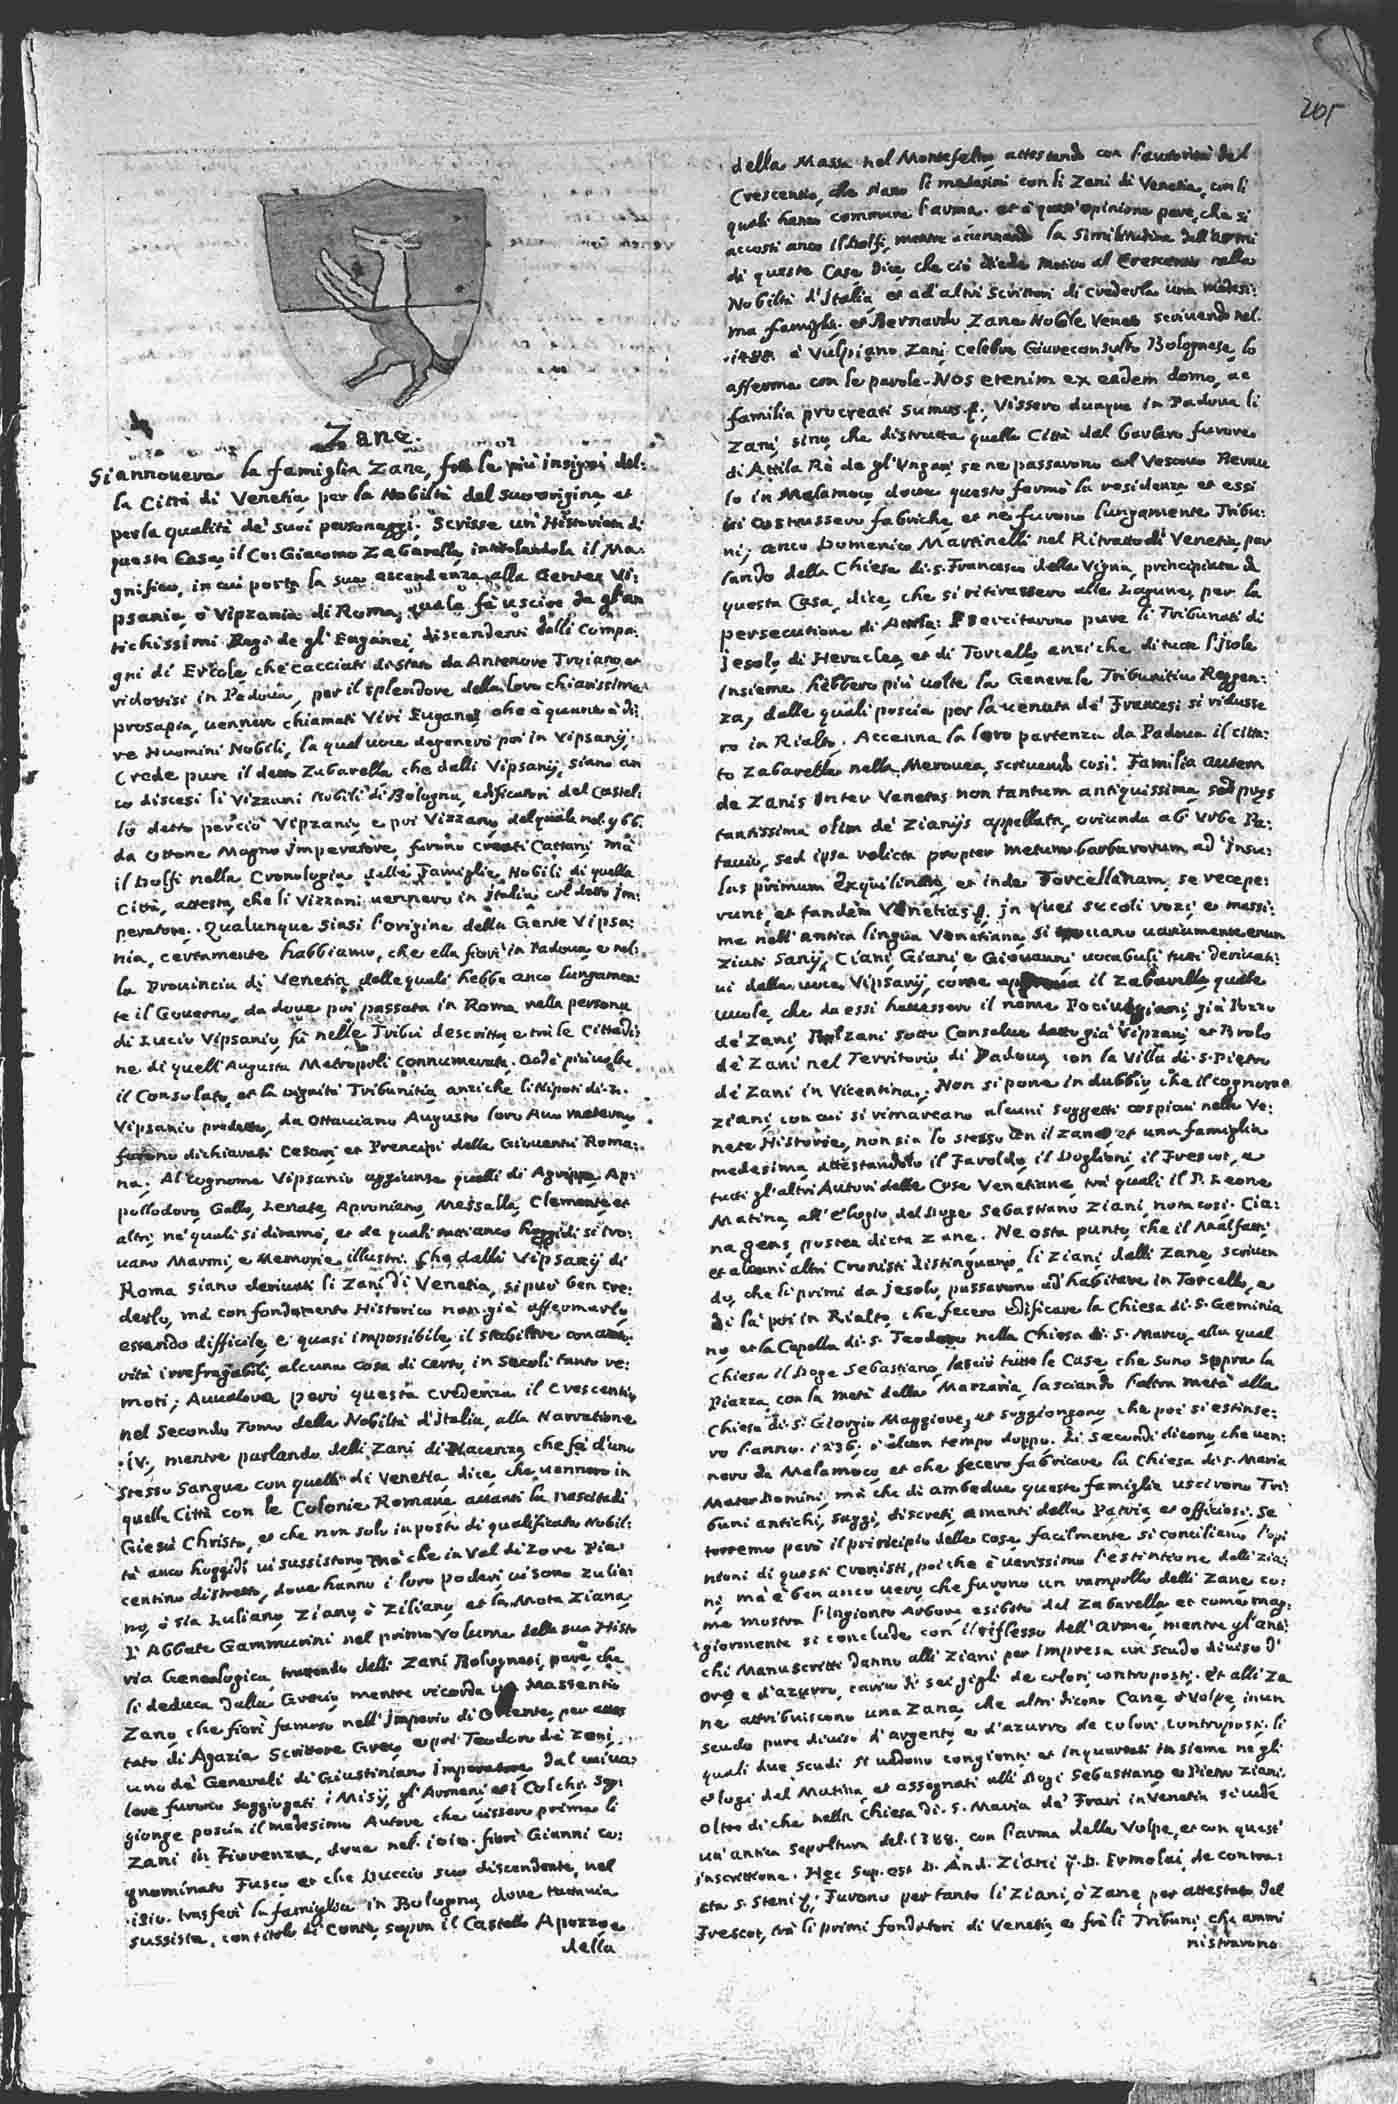 205
Zane.
Si annovera la famiglia Zane, frà le più insigni del:
la Città di Venetia, per la Nobiltà del suo origine, et
per la qualità de' suoi personaggi. Scrisse un' Historia di
questa Casa, il Co: Giacomo Zabarella, intitolandola il Ma:
gnifico, in cui porta la sua ascendenza alla Gente Vi:
psania, ò Vipzania di Roma, quale fà uscire da gl'an
tichissimi Regi de gl'Euganei, discendenti dalli Compa:
gni di Ercole, che cacciati di stato da Antenore Troiano, et
ridottisi in Padoua, per il splendore della loro chiarissima
prosapia, uennero chiamati Viri Euganei, che è quanto à di:
re Huomini Nobili, la qual uoce degenerò poi in Vipsanij.
Crede pure il detto Zabarella che dalli Vipsanij, siano an
co discesi li Vizzani Nobili di Bologna, edificatori del Castel:
lo detto perciò Vipzano, e poi Vizzano, del quale nel 966.
da Ottone Magno Imperatore, furono creati Cattani, mà
il Dolfi nella Cronologia delle Famiglie Nobili di quella
Città, attesta, che li Vizzani uennero in Italia col detto Im:
peratore. Qualunque siasi l'origine della Gente Vipsa:
nia, certamente habbiamo, che ella fiorì in Padoua, e nel:
la Prouincia di Venetia, delle quali hebbe anco lungamen:
te il Gouerno, da doue poi passata in Roma nella persona
di Lucio Vipsanio, fù nelle Tribù descritta, e trà le Cittadi:
ne di quell'Augusta Metropoli connumerata. Ottenne più uolte
il Consolato, et la dignità Tribunitia, anzi che li Nipoti di L.
Vipsanio predetto, da Ottauiano Augusto loro Auo materno
furono dichiarati Cesari, et Prencipi della Giouentù Roma:
na. Al cognome Vipsanio aggiunse quelli di Agrippa, Ap:
pollodoro, Gallo, Lenate, Aproniano, Messalla, Clemente, et
altri, ne' quali si diramò, et de quali anco hoggidì si tro:
uano Marmi, e Memorie illustri. Che dalli Vipsanij di
Roma siano deriuati li Zani di Venetia, si può ben cre:
derlo, mà con fondamento Historico non già affermarlo,
essendo difficile, e quasi impossibile il stabilire con auto:
rità irrefragabili, alcuna cosa di certo, in Secoli tanto re:
moti; Auualora però questa credenza il Crescentio
nel Secondo Tomo della Nobiltà d'Italia, alla Narratione
.IV., mentre parlando delli Zani di Piacenza, che fà d'uno
stesso Sangue con quelli di Venetia, dice, che uennero in
quella Città con le Colonie Romane auanti la nascita di
Giesù Christo, et che non solo in posto di qualificata Nobil:
tà anco hoggidì ui sussistono, mà che in Val di Zore Pia:
centino distretto, doue hanno i loro poderi, ui sono Zulia:
no, ò sia Luliano, Ziano, ò Ziliano, et la Mota Ziana.
L'Abbate Gammurini nel primo Volume della sua Histo
ria Genealogica, trattando delli Zani Bolognesi, pare che
li deduca dalla Grecia, mentre ricorda un Massentio
Zano, che fiorì famoso nell'Imperio di Oriente, per attes
tato di Agazia Scrittore Greco, e poi Teodoro de' Zani,
uno de' Generali di Giustiniano Imperatore, dal cui ua:
lore furono soggiogati i Misij, gl'Armeni, et i Colchi. Sog:
gionge poscia il medesimo Autore che uissero prima li
Zani in Fiorenza, doue nel .1010. fiorì Gianni co:
gnominato Fusco, et che Duccio suo discendente, nel
trasferì la famiglia in Bologna, doue tuttauia
sussiste, con titolo di Conte, sopra il Castello Apozzo, e
della
della Massa nel Montefeltro, attestando con l'autorità del
Crescentio, che siano li medesimi con li Zani di Venetia, con li
quali hanno commune l'arma. et à quest'opinione pare, che si
accosti anco il Dolfi, mentre accennando la similitudine dell'armi
di queste Case dice, che ciò diede motiuo al Crescentio nella
Nobiltà d'Italia, et ad altri Scrittori di crederla una medesi:
ma famiglia. et Bernardo Zane Nobile Veneto scriuendo nel
à Vulpiano Zani, celebre Giureconsulto Bolognese, lo
afferma con le parole. Nos etenim ex eadem domo, ac
familia procreati sumus. Vissero dunque in Padoua li
Zani, sino che distrutta quella Città dal barbaro furore
di Attila Rè de gl'Ungari, se ne passarono col Vescouo
lo in Malamoco, doue questo fermò la residenza, et essi
ui costrussero fabriche, et ne furono lungamente Tribu:
ni, anco Domenico Martinelli nel Ritratto di Venetia, par
lando della Chiesa di S. Francesco della Vigna, principiata da
questa Casa, dice, che si ritirassero alle Lagune, per la
persecutione di Attila: Esercitarono pure li Tribunati di
Jesolo, di Heraclea, et di Torcello, anzi che di tutte l'Isole
insieme hebbero più uolte la Generale Tribunitia Reggen:
za, dalle quali poscia per la uenuta de' Francesi si ridusse
ro in Rialto. Accenna la loro partenza da Padoua il citta:
to Zabarella nella Merouea, scriuendo così: Familia autem
de Zanis inter Venetas non tantum antiquissima, sed puys
tantissima olim de Zianijs appellata, oriunda ab Urbe Pa:
tauio, sed ipsa relicta propter metum barbarorum, ad Insu:
las primum Exquilinam, et inde Torcellanam, se recepe:
runt, et tandem Venetias. In quei secoli rozi, e massi:
me nell'antica lingua Venetiana, si trouano uariamente enun
ziati Sanij, Ciani, Giani, e Giouanni uocabuli tutti deriuati:
ui dalla uoce Vipsanij, come approua il Zabarella quale
uuole, che da essi hauessero il nome Pociueggiani, già Pozzo
de' Zani, Polzani sotto Conselue detto già Vipzani, et Brolo
de' Zani nel Territorio di Padoua, con la Villa di S. Pietro
de' Zani in Vicentina. Non si pone in dubbio, che il cognome
Ziani, con cui si rimarcano alcuni soggetti cospicui nelle Ve:
nete Historie, non sia lo stesso con il Zane, et una famiglia
medesima, attestandolo il Faroldo, il Doglioni, il Frescot, e
tutti gl'altri Autori delle Cose Venetiane, trà quali il P. Leone
Matina, all'elogio del Doge Sebastiano Ziani, nota così. Cia:
na gens, postea dicta Zane. Ne osta punto, che il Malfatti,
et alcuni altri Cronisti distinguano, li Ziani dalli Zane, scriuen
do, che li primi da Jesolo, passarono ad habitare in Torcello, e
di là poi in Rialto, che fecero edificare la Chiesa di S. Geminia
no, et la Capella di S. Teodoro nella Chiesa di S. Marco, alla qual
Chiesa il Doge Sebastiano, lasciò tutte le Case, che sono sopra la
Piazza, con la metà della Marzaria, lasciando l'altra metà alla
Chiesa di S. Giorgio Maggiore, et soggiongono, che poi si estinse:
ro l'anno .1236. ò alcun tempo doppo. Li secondi dicono, che uen:
nero da Malamoco, et che fecero fabricare la Chiesa di S. Maria
Mater Domini, mà che di ambedue queste famiglie uscirono Tri:
buni antichi, saggi, discreti, amanti della Patria, et officiosi. Se
torremo però il principio delle cose, facilmente si conciliano l'opi
nioni di questi Cronisti, poiche è uerissimo l'estintione delli Zia:
ni, mà è ben anco uero, che furono un rampollo delli Zane, co:
me mostra l'ingionto Arbore esibito dal Zabarella, et come mag:
giormente si conclude con il riflesso dell'Arme, mentre gl'anti:
chi Manuscritti danno alli Ziani per Impresa un scudo diuiso d'
oro, e d'azurro, carico di sei gigli de colori controposti. Et alli Za
ne attribuiscono una Zana, che altri dicono Cane, ò Volpe, in un
scudo pure diuiso d'argento, e d'azurro de colori controposti. li
quali due scudi si uedono congionti, et inquartati insieme ne gli
elogi del Matina, et assegnati alli Dogi Sebastiano, e Pietro Ziani.
oltre di che nella Chiesa di S. Maria de' Frari in Venetia si uede
un'antica sepoltura del .1388. con l'arma della Volpe, et con quest'
inscrittione. Hec Sep. est D. And. Ziani q. D. Ermolai, de contra:
cta S. Steni. Furono per tanto li Ziani, ò Zane, per attestato del
Frescot, trà li primi fondatori di Venetia, e frà li Tribuni, che ammi
nistrarono